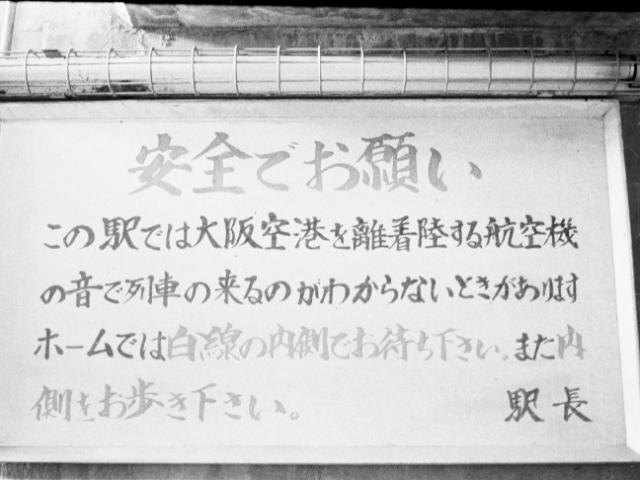 安全でお願い
この駅では大阪空港を離着陸する航空機
の音で列車の来るのがわからないときがあります
ホームでは白線の内側でお待ち下さい。また内
側をお歩き下さい。 駅長